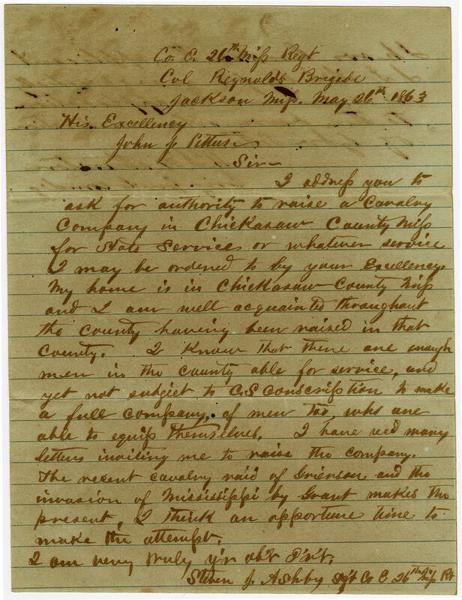 Co E. 26th Miss Regt
Col Reynolds Brigade
Jackson Miss. May 26th 1863
His Excellency
John J Pettus
Sir—
I address you to
ask for authority to raise a Cavalry
Company in Chickasaw County Miss
for State Services or whatever service
I may be ordered to by your Excellency.
My home is in Chickasaw County Miss
and I am well acquainted throughout
the county having been raised in that
County. I know that there are enough
men in the county able for service, and
yet not subject to C.S. conscription to make
a full company, of men too, who are
able to equip themselves. I have recd many
letters inviting me to raise the company.
The recent cavalry raid of Grierson and the
invasion of Mississippi by Grant makes the
present, I think an opportune time to
make the attempt.
I am very truly y'r ob't S'v't.
Steven J Ashby Sgt Co E 26th Miss Rt